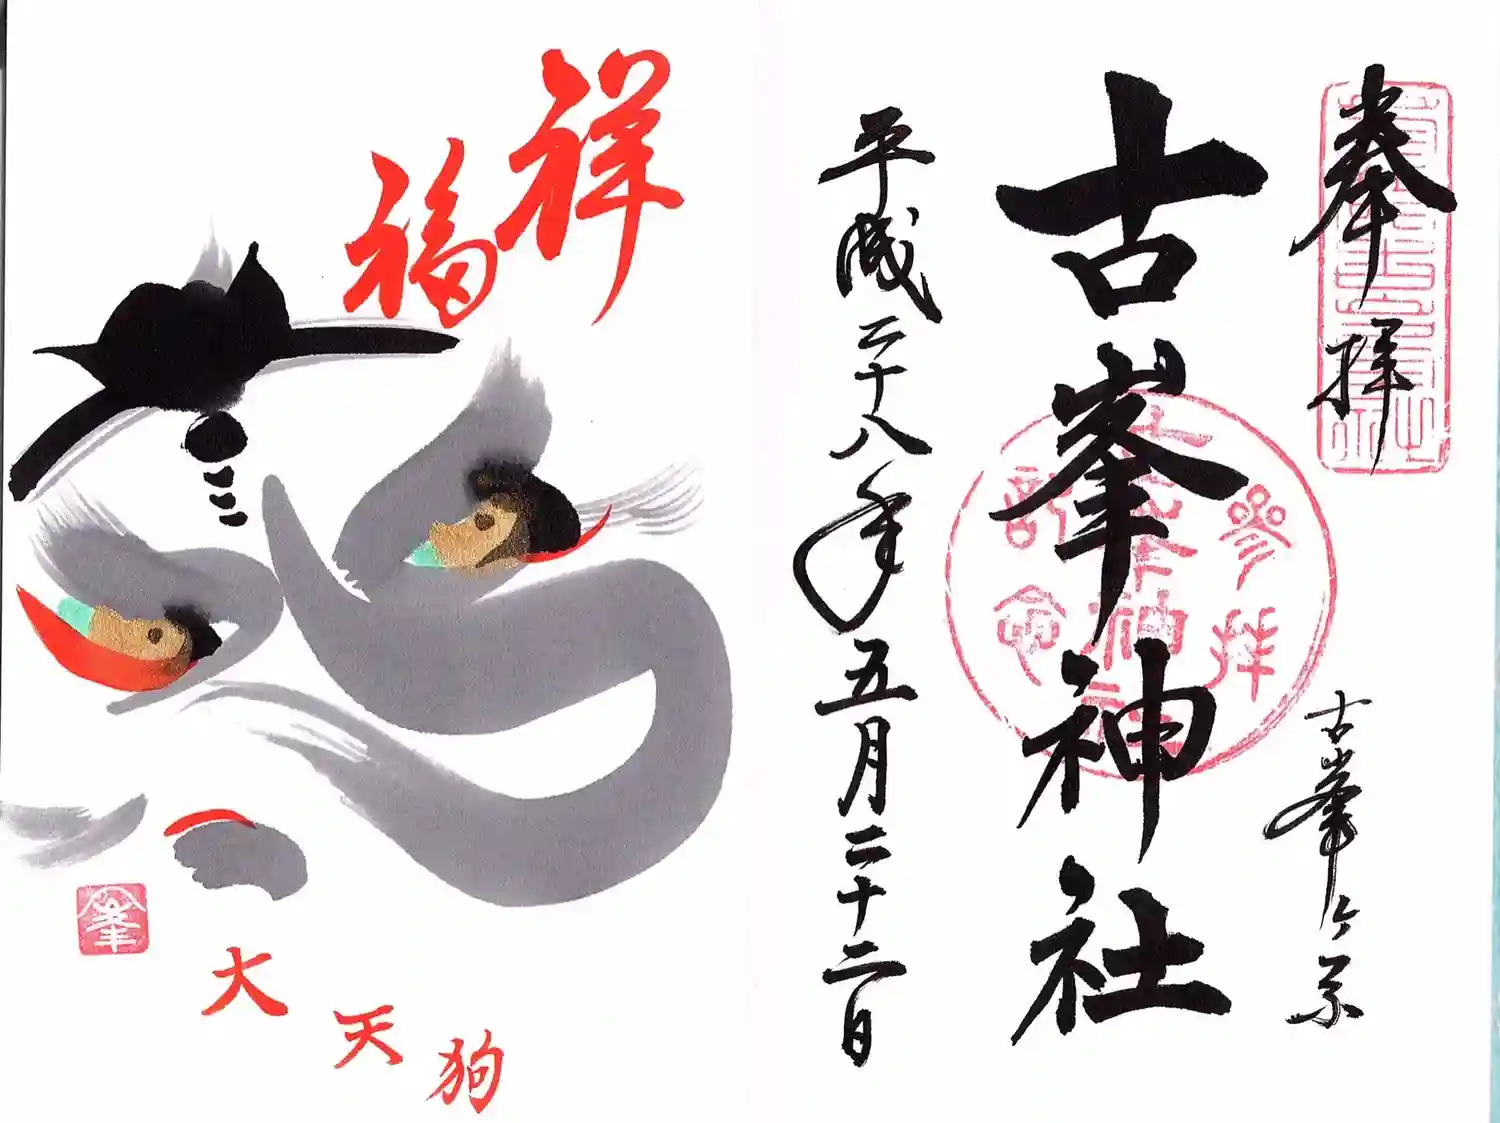 奉拝
古峯ヶ原
古峯神社
平成二十八年五月二十二日
祥福
大天狗
峯
参拝